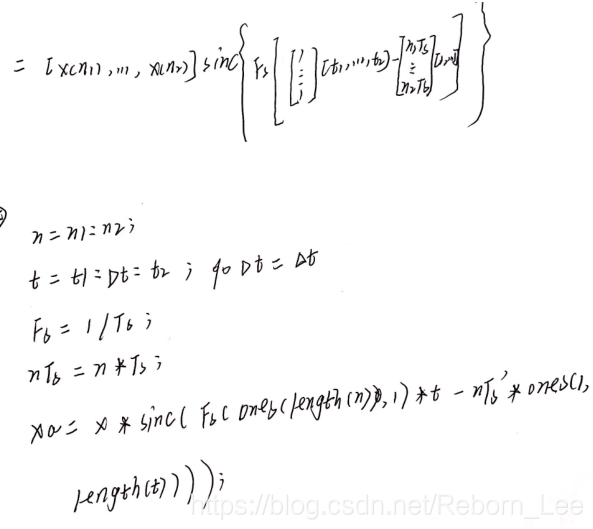 = [x(n1), ..., x(n2)] sinc{ Fs [ [1 ⋮ 1] [t1, ..., t2] - [n1Ts ⋮ n2Ts] [1, ..., 1] ] }
n = n1:n2;
t = t1:Dt:t2 ; % Dt = Δt
Fs = 1/Ts;
nTs = n*Ts;
xa = x * sinc( Fs( ones(length(n), 1) * t - nTs' * ones(1,
length(t))));
https://blog.csdn.net/Reborn_Lee